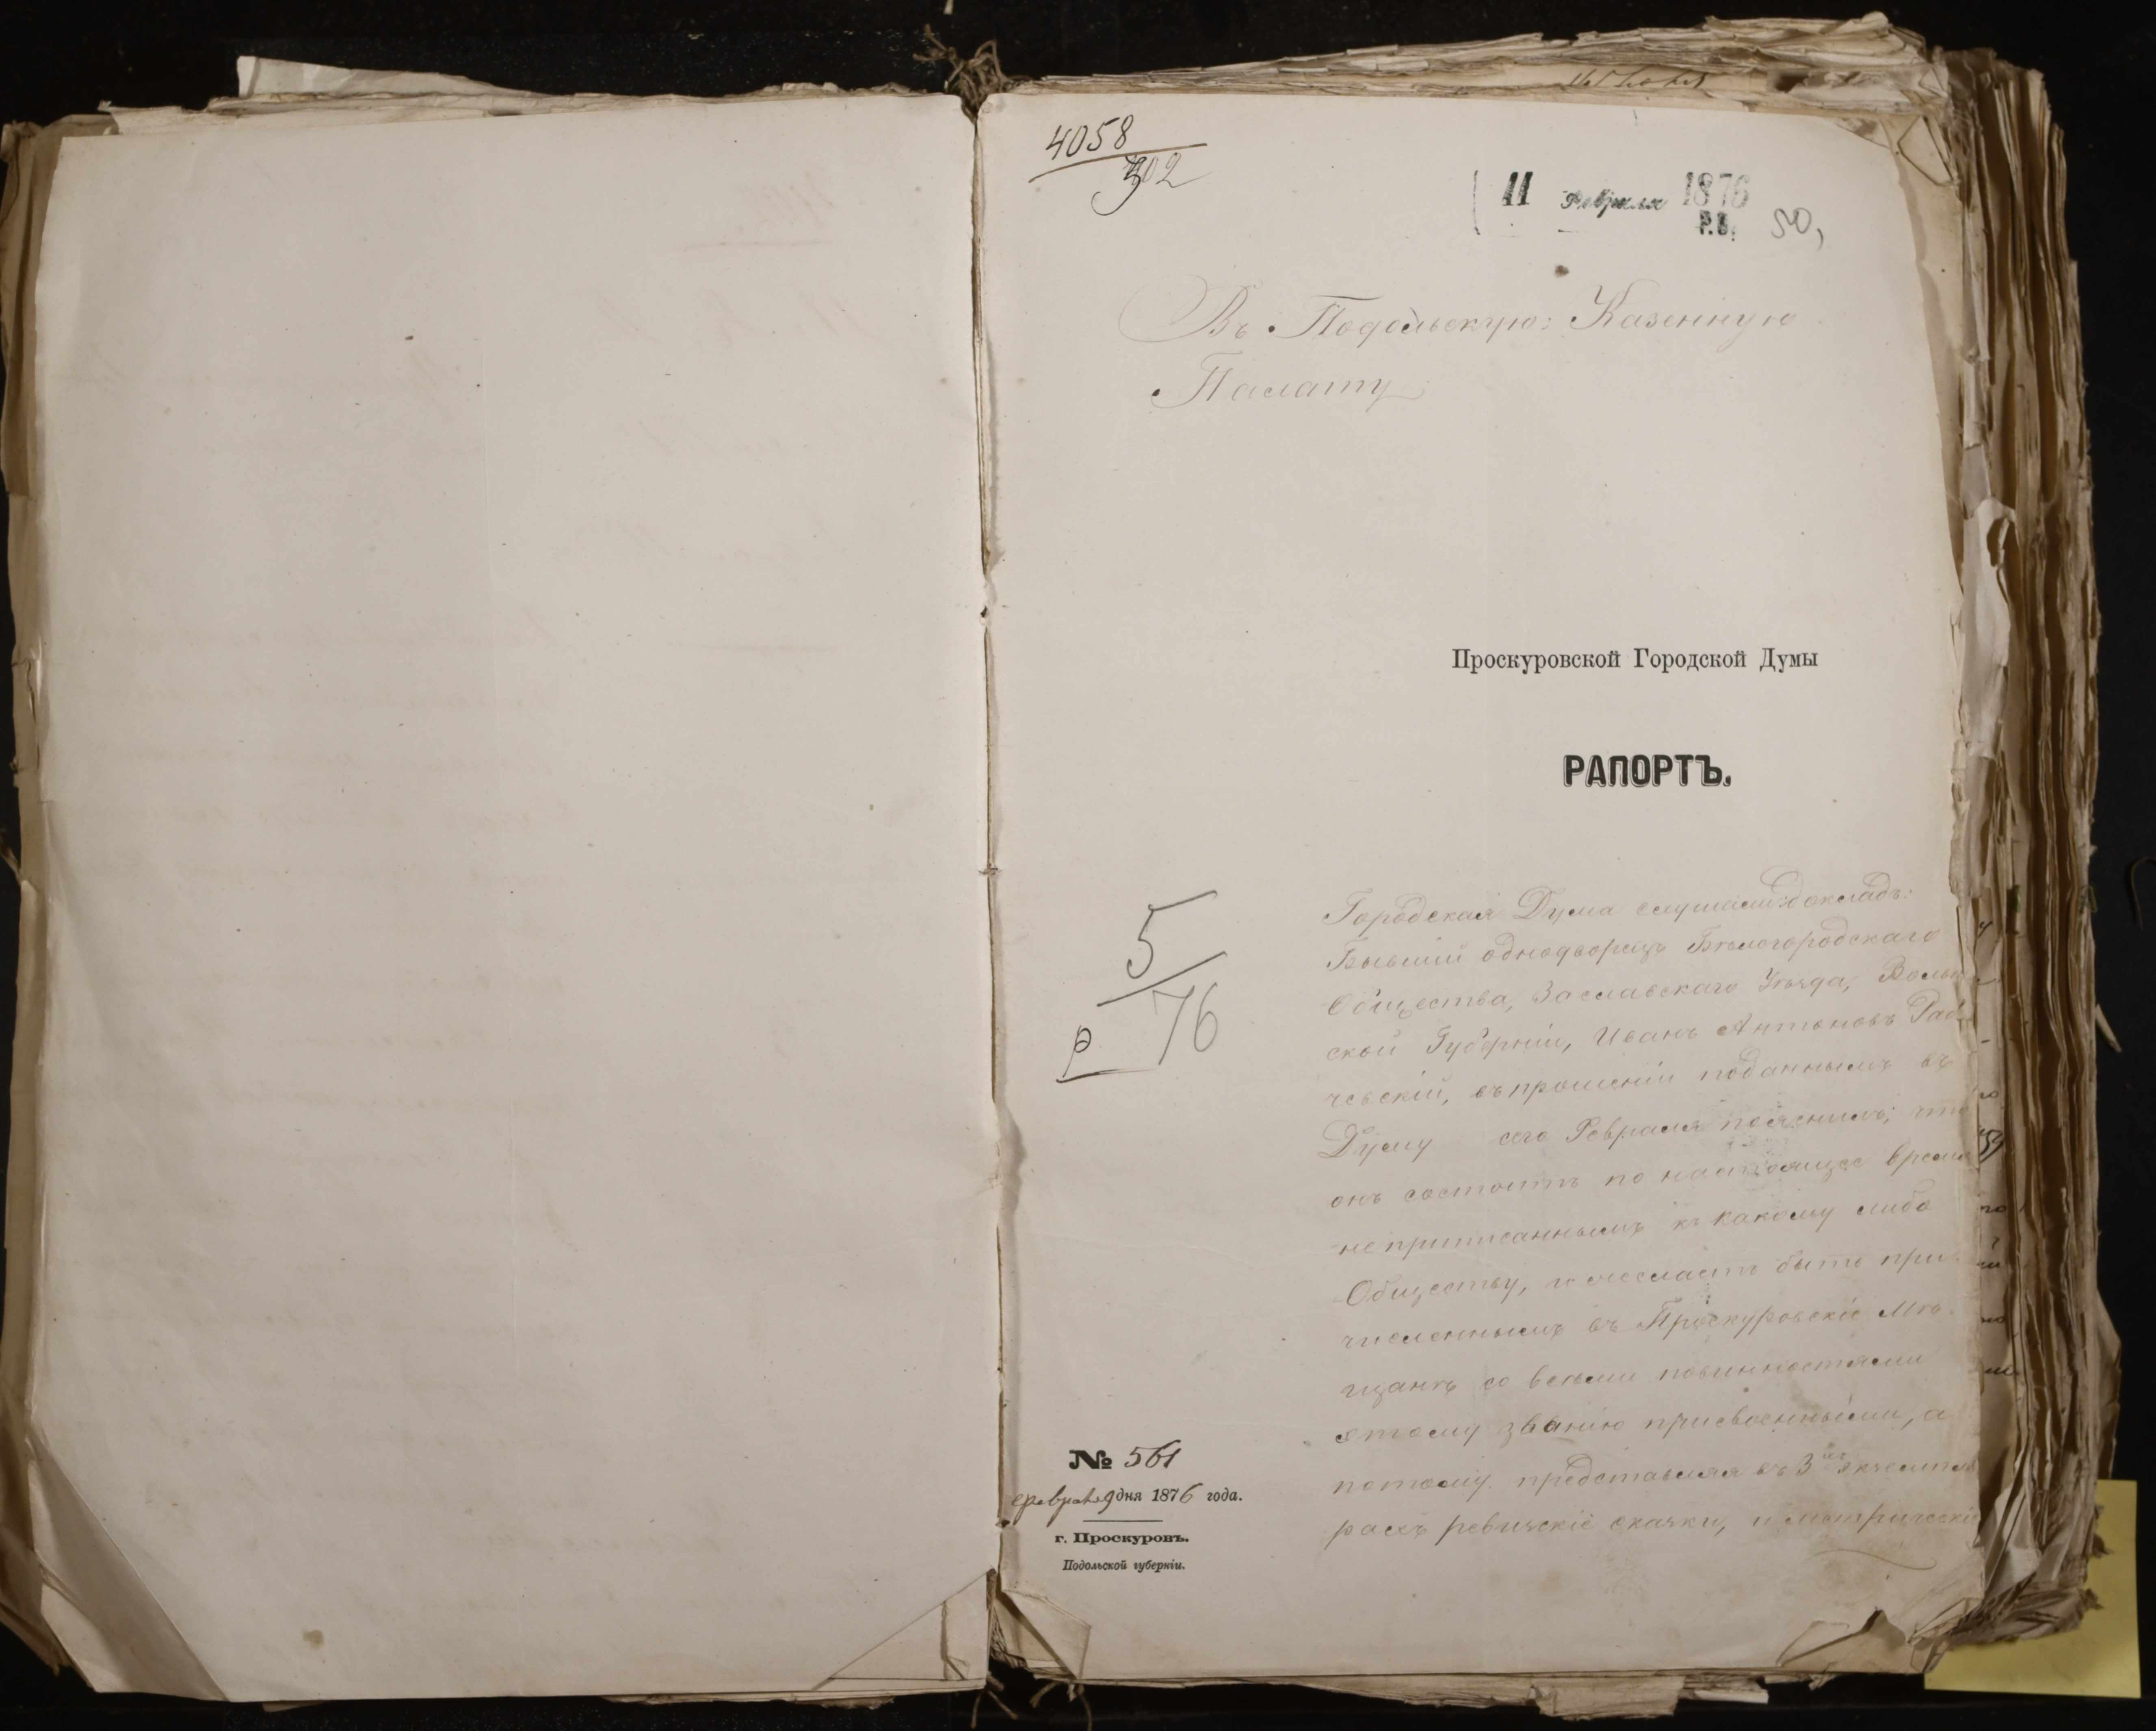 4058
302
11 Февраля 1876
Р.В. 50,
Въ Подольскую Казенную
Палату
Проскуровской Городской Думы
РАПОРТЪ.
5
76
Городская Дума слушали докладъ:
Бывшій однодворецъ Бѣлогородскаго
Общества, Заславскаго Уѣзда, Волын
ской Губерніи, Иванъ Антоновъ Рад
чевскій, въ прошеніи поданнымъ въ
Думу сего Февраля пояснилъ, что
онъ состоитъ по настоящее время
не приписаннымъ къ какому либо
Обществу, и желаетъ быть при-
численнымъ въ Проскуровскіе Мѣ-
щанѣ со всѣми повинностями
этому званію присвоенными, а
потому представляя въ 3хъ экземпля
рахъ ревизскіе сказки, и метрическіе
№ 561
февраля 9 дня 1876 года.
г. Проскуровъ.
Подольской губерніи.